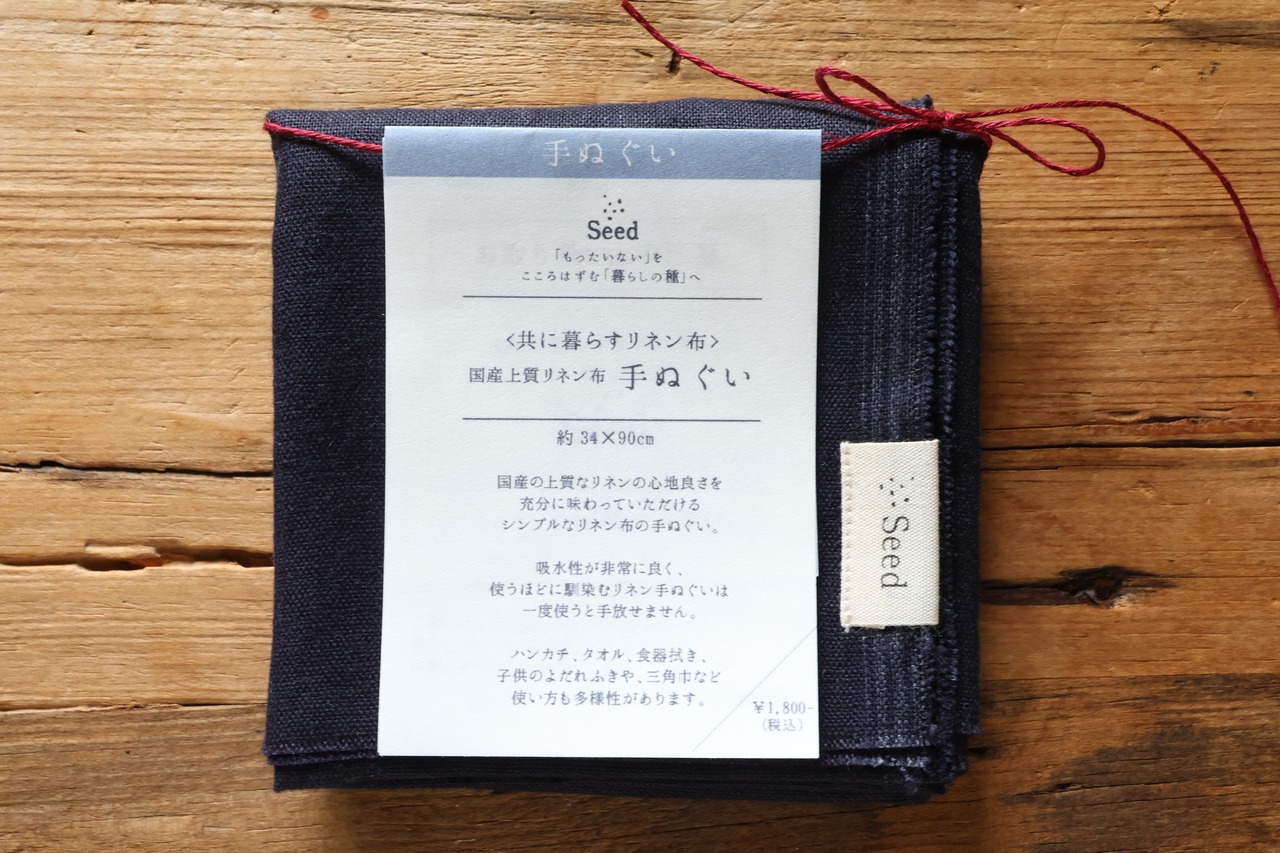 手ぬぐい
Seed
「もったいない」を
こころはずむ「暮らしの種」へ
<共に暮らすリネン布>
国産上質リネン布 手ぬぐい
約 34×90cm
国産の上質なリネンの心地良さを
充分に味わっていただける
シンプルなリネン布の手ぬぐい。
吸水性が非常に良く、
使うほどに馴染むリネン手ぬぐいは
一度使うと手放せません。
ハンカチ、タオル、食器拭き、
子供のよだれふきや、三角巾など
使い方も多様性があります。
¥1,800-
(税込)
Seed